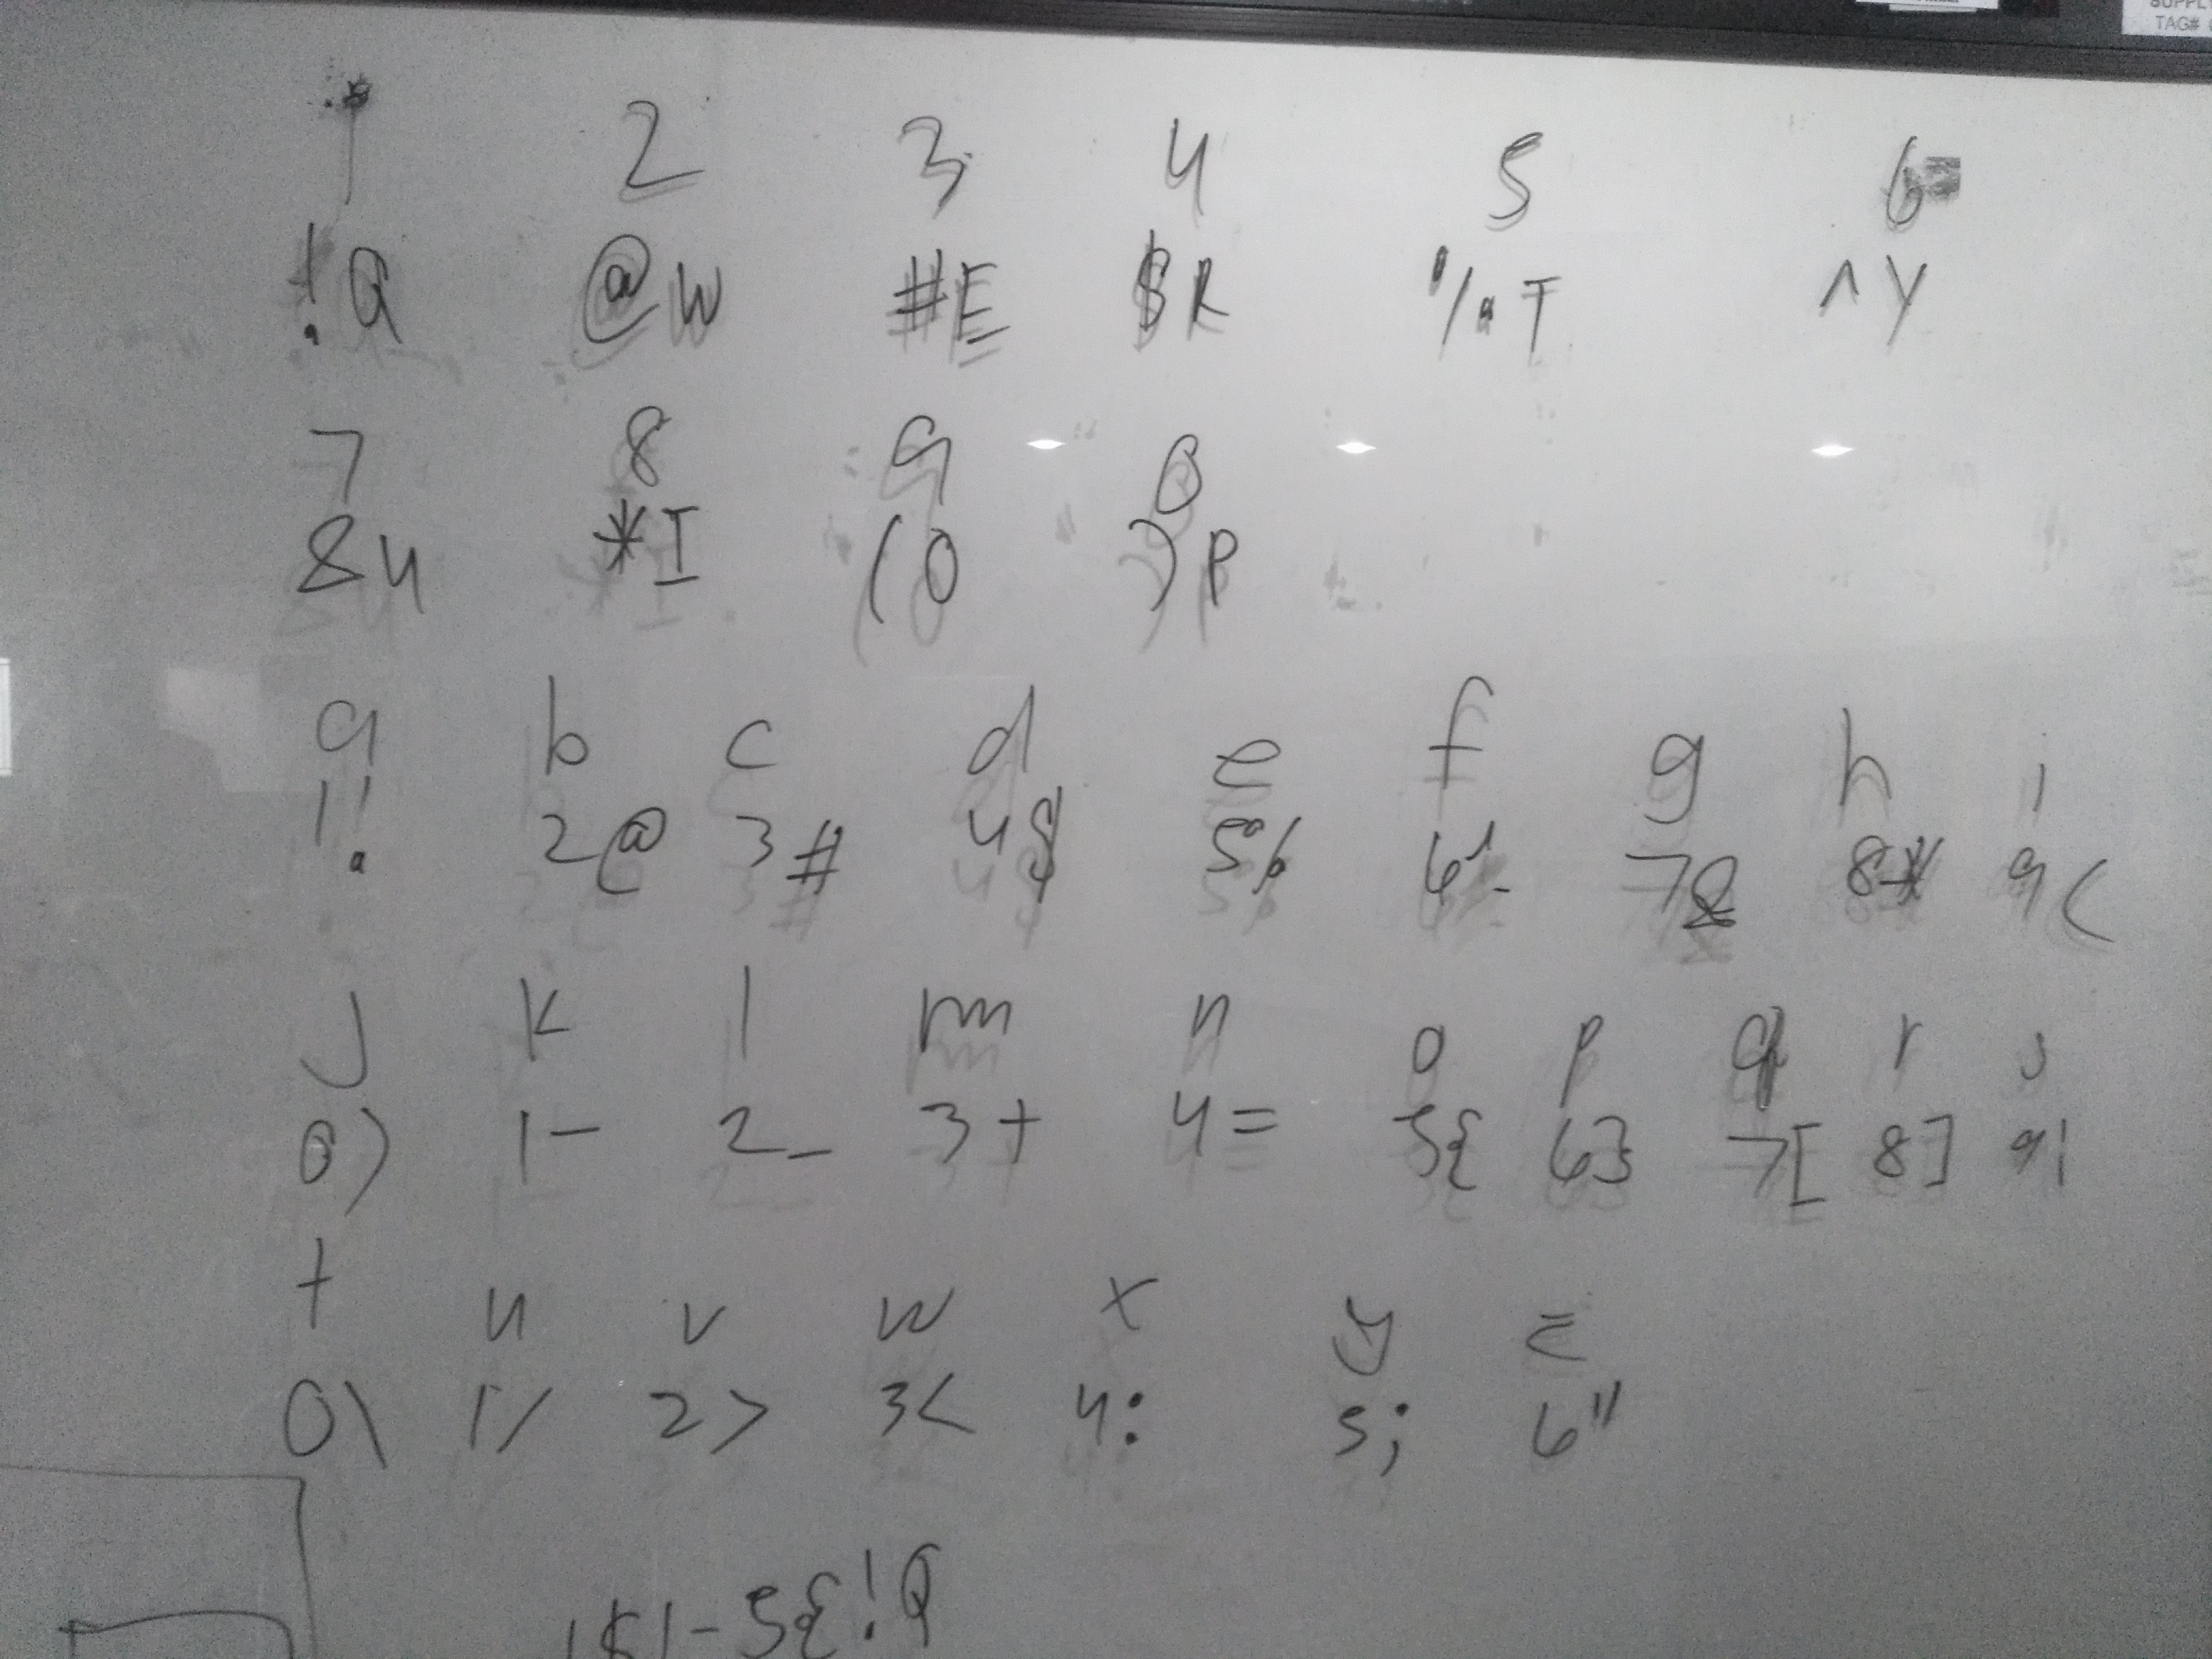 SUPPLY
TAG#
1 2 3 4 5 6
!Q @W #E $R %T ^Y
7 8 9 0
&U *I (O )P
a b c d e f g h i
1! 2@ 3# 4$ 5% 6^ 7& 8* 9(
j k l m n o p q r s
0) 1- 2_ 3+ 4= 5{ 6} 7[ 8] 9|
t u v w x y z
0\ 1/ 2> 3< 4: 5; 6"
1-5{!Q